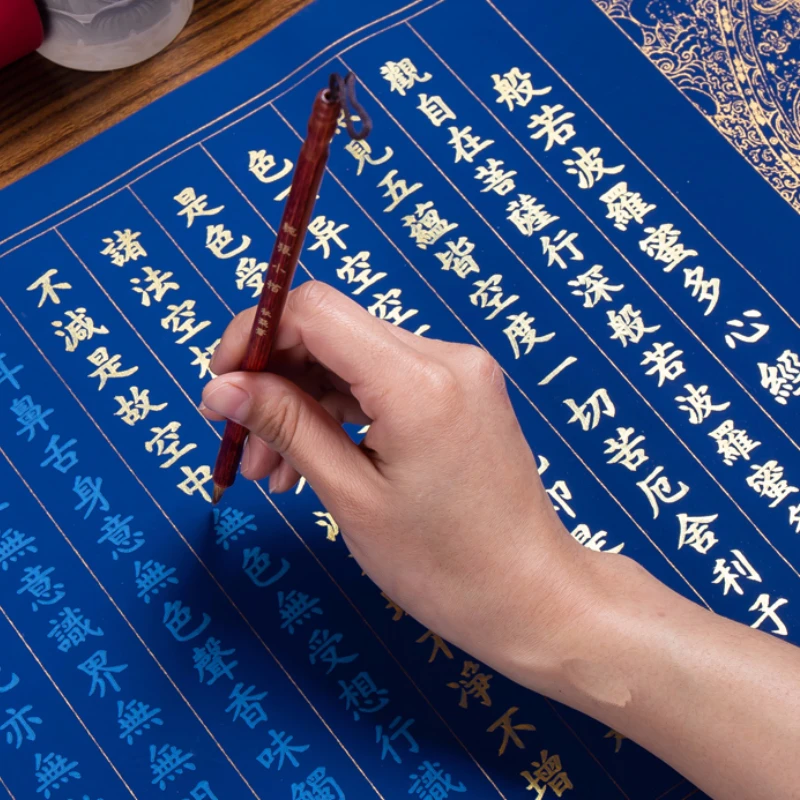 般若波羅蜜多心經
觀自在菩薩行深般若波羅蜜
見五蘊皆空度一切苦厄舍利子
色异空空是
是色受
諸法空不淨不增
不減是故空中無色無受想行識
鼻舌身意無色聲香味觸
無意識界無無
亦無